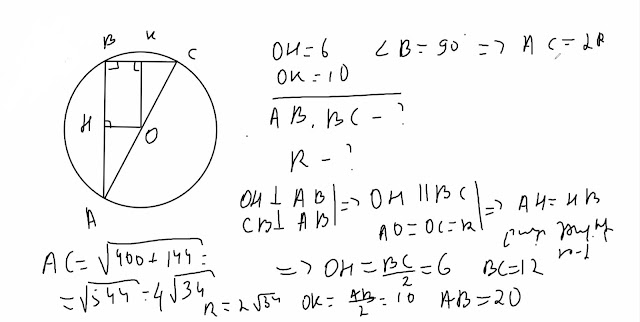 B K C
H
O
A
OH=6 ∠B=90° => AC=2R
OK=10
AB, BC - ?
R - ?
OH ⊥ AB
CB ⊥ AB
=> OH || BC
AO=OC=R
=> AH=HB
AC=√400+144 =
=√544=4√34
R=2√34
=> OH=BC/2=6 BC=12
OK=AB/2=10 AB=20